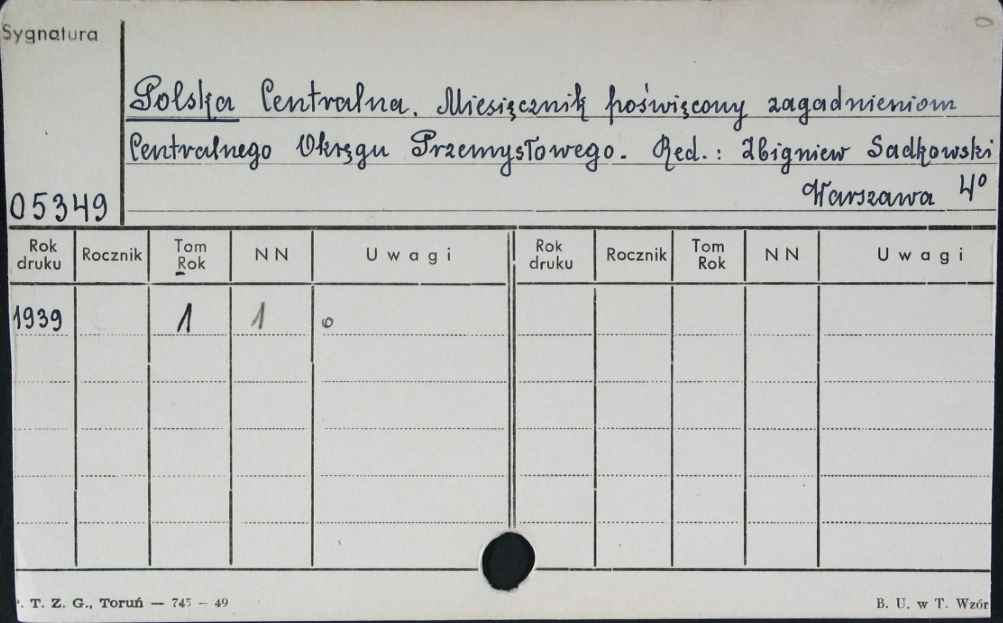 Sygnatura
Polska Centralna. Miesięcznik poświęcony zagadnieniom
Centralnego Okręgu Przemysłowego. Red.: Zbigniew Sadkowski
Warszawa 4°
05349
Rok druku Rocznik Tom Rok NN Uwagi Rok druku Rocznik Tom Rok NN Uwagi
1939 1 1 o
. T. Z. G., Toruń — 745 – 49 B. U. w T. Wzór